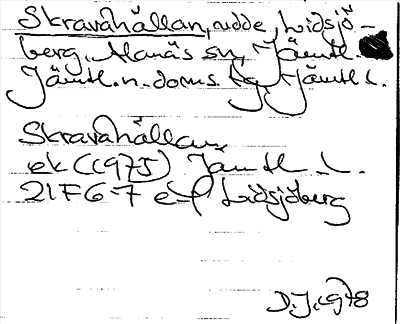 Skravahällan, udde, Lidsjö-
berg, Alanäs sn, Jämtl.
Jämtl. n. doms. tg, Jämtl. l.
Skravahällan
ek (1975) Jämtl. l.
21F 6-7 e-f Lidsjöberg
D.J. 1978